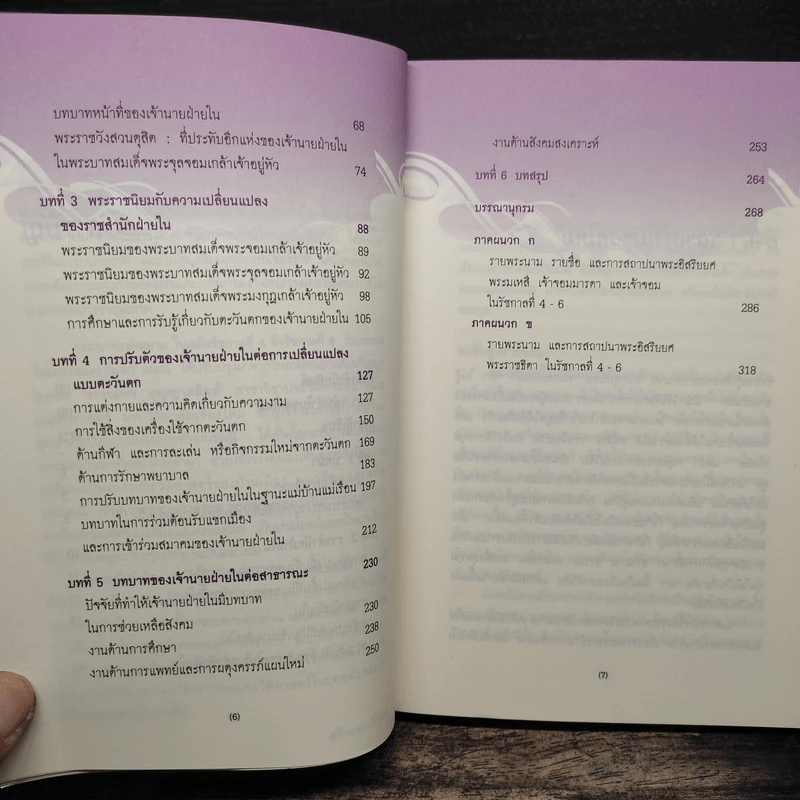 บทบาทหน้าที่ของเจ้านายฝ่ายใน 68
พระราชวังสวนดุสิต : ที่ประทับอีกแห่งของเจ้านายฝ่ายใน
ในพระบาทสมเด็จพระจุลจอมเกล้าเจ้าอยู่หัว 74
บทที่ 3 พระราชนิยมกับความเปลี่ยนแปลง
ของราชสำนักฝ่ายใน 88
พระราชนิยมของพระบาทสมเด็จพระจอมเกล้าเจ้าอยู่หัว 89
พระราชนิยมของพระบาทสมเด็จพระจุลจอมเกล้าเจ้าอยู่หัว 92
พระราชนิยมของพระบาทสมเด็จพระมงกุฎเกล้าเจ้าอยู่หัว 98
การศึกษาและการรับรู้เกี่ยวกับตะวันตกของเจ้านายฝ่ายใน 105
บทที่ 4 การปรับตัวของเจ้านายฝ่ายในต่อการเปลี่ยนแปลง
แบบตะวันตก 127
การแต่งกายและความคิดเกี่ยวกับความงาม 127
การใช้สิ่งของเครื่องใช้จากตะวันตก 150
ด้านกีฬา และการละเล่น หรือกิจกรรมใหม่จากตะวันตก 169
ด้านการรักษาพยาบาล 183
การปรับบทบาทของเจ้านายฝ่ายในในฐานะแม่บ้านแม่เรือน 197
บทบาทในการร่วมต้อนรับแขกเมือง
และการเข้าร่วมสมาคมของเจ้านายฝ่ายใน 212
บทที่ 5 บทบาทของเจ้านายฝ่ายในต่อสาธารณะ 230
ปัจจัยที่ทำให้เจ้านายฝ่ายในมีบทบาท
ในการช่วยเหลือสังคม 230
งานด้านการศึกษา 238
งานด้านการแพทย์และการผดุงครรภ์แผนใหม่ 250
(6)
งานด้านสังคมสงเคราะห์ 253
บทที่ 6 บทสรุป 264
บรรณานุกรม 268
ภาคผนวก ก
รายพระนาม รายชื่อ และการสถาปนาพระอิสริยยศ
พระมเหสี เจ้าจอมมารดา และเจ้าจอม
ในรัชกาลที่ 4 - 6 286
ภาคผนวก ข
รายพระนาม และการสถาปนาพระอิสริยยศ
พระราชธิดา ในรัชกาลที่ 4 - 6 318
(7)